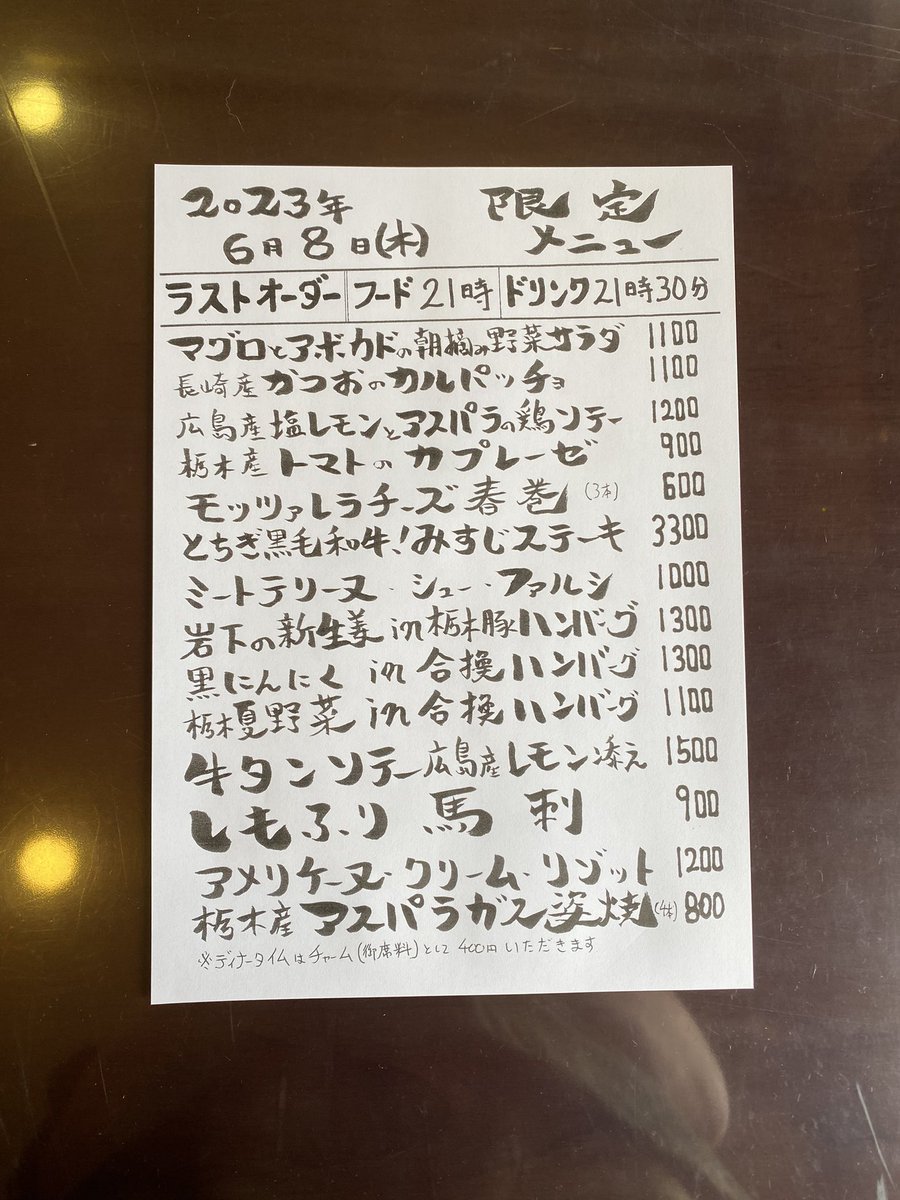 2023年 限定
6月8日(木) メニュー
ラストオーダー フード21時 ドリンク21時30分
マグロとアボカドの朝摘み野菜サラダ 1100
長崎産かつおのカルパッチョ 1100
広島産塩レモンとアスパラの鶏ソテー 1200
栃木産トマトのカプレーゼ 900
モッツァレラチーズ春巻(3本) 600
とちぎ黒毛和牛!みすじステーキ 3300
ミートテリーヌ・シュー・ファルシ 1000
岩下の新生姜in栃木豚ハンバーグ 1300
黒にんにくin合挽ハンバーグ 1300
栃木夏野菜in合挽ハンバーグ 1100
牛タンソテー広島産レモン添え 1500
しもふり馬刺 900
アメリケーヌ・クリーム・リゾット 1200
栃木産アスパラガス姿焼(4本) 800
※ディナータイムはチャーム(御席料)として400円いただきます